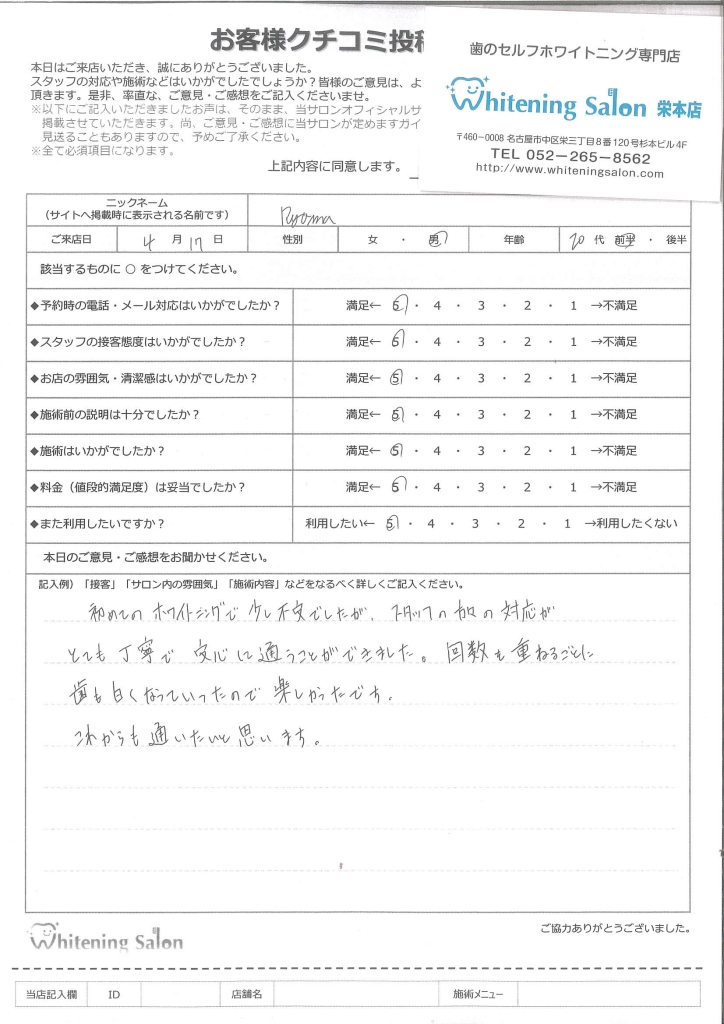 お客様クチコミ投稿
歯のセルフホワイトニング専門店
Whitening Salon 栄本店
〒460-0008 名古屋市中区栄三丁目8番120号杉本ビル4F
TEL 052-265-8562
http://www.whiteningsalon.com
本日はご来店いただき、誠にありがとうございました。
スタッフの対応や施術などはいかがでしたでしょうか？皆様のご意見は、よ
頂きます。是非、率直な、ご意見・ご感想をご記入くださいませ。
※以下にご記入いただきましたお声は、そのまま、当サロンオフィシャルサ
掲載させていただきます。尚、ご意見・ご感想に当サロンが定めますガイ
見送ることもありますので、予めご了承ください。
※全て必須項目になります。
上記内容に同意します。
ニックネーム
（サイトへ掲載時に表示される名前です）
Ryoma
ご来店日 4 月 17 日 性別 女 ・ 男 年齢 20 代 前半 ・ 後半
該当するものに ○ をつけてください。
◆予約時の電話・メール対応はいかがでしたか？ 満足← 5 ・ 4 ・ 3 ・ 2 ・ 1 →不満足
◆スタッフの接客態度はいかがでしたか？ 満足← 5 ・ 4 ・ 3 ・ 2 ・ 1 →不満足
◆お店の雰囲気・清潔感はいかがでしたか？ 満足← 5 ・ 4 ・ 3 ・ 2 ・ 1 →不満足
◆施術前の説明は十分でしたか？ 満足← 5 ・ 4 ・ 3 ・ 2 ・ 1 →不満足
◆施術はいかがでしたか？ 満足← 5 ・ 4 ・ 3 ・ 2 ・ 1 →不満足
◆料金（値段的満足度）は妥当でしたか？ 満足← 5 ・ 4 ・ 3 ・ 2 ・ 1 →不満足
◆また利用したいですか？ 利用したい← 5 ・ 4 ・ 3 ・ 2 ・ 1 →利用したくない
本日のご意見・ご感想をお聞かせください。
記入例）「接客」「サロン内の雰囲気」「施術内容」などをなるべく詳しくご記入ください。
初めてのホワイトニングで少し不安でしたが、スタッフの方々の対応が
とても丁寧で安心して通うことができました。回数も重ねるごとに
歯も白くなっていったので楽しかったです。
これからも通いたいと思います。
Whitening Salon
ご協力ありがとうございました。
当店記入欄 ID 店舗名 施術メニュー